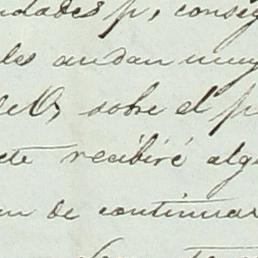 dades p, conseg
les andan muy
sobre el p
cte recibiré alg
de continuar